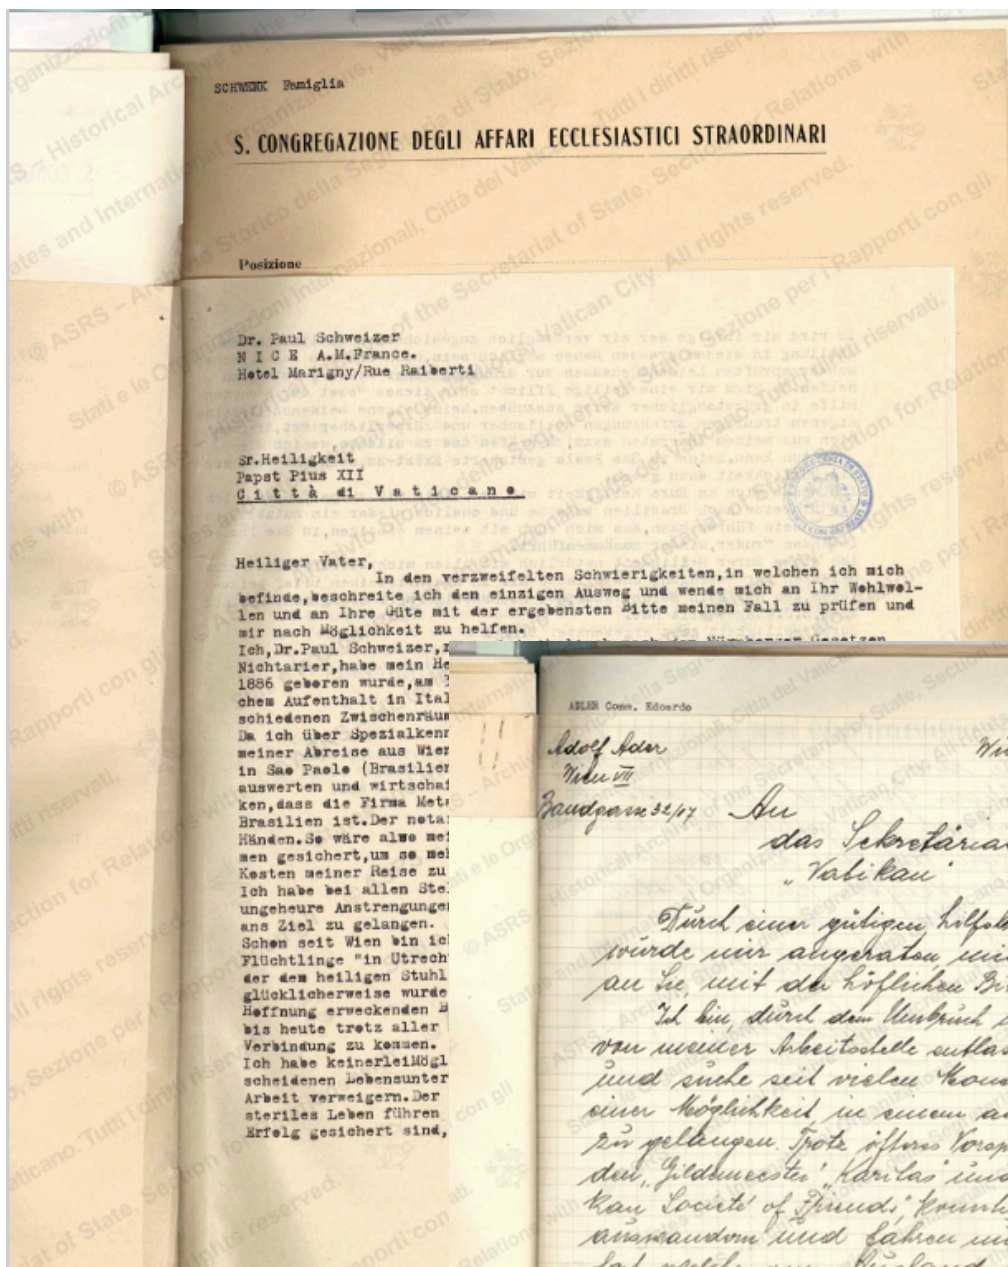 SCHWENK Famiglia
S. CONGREGAZIONE DEGLI AFFARI ECCLESIASTICI STRAORDINARI
Posizione
Dr. Paul Schweizer
N I C E A.M.France.
Hotel Marigny/Rue Raiberti
Sr.Heiligkeit
Papst Pius XII
C i t t à d i V a t i c a n o
Heiliger Vater,
In den verzweifelten Schwierigkeiten,in welchen ich mich
befinde,beschreite ich den einzigen Ausweg und wende mich an Ihr Wohlwol-
len und an Ihre Güte mit der ergebensten Bitte meinen Fall zu prüfen und
mir nach Möglichkeit zu helfen.
Ich,Dr.Paul Schweizer,
Nichtarier,habe mein He
1886 geboren wurde,am
chem Aufenthalt in Ital
schiedenen Zwischenräum
Da ich über Spezialkenn
meiner Abreise aus Wien
in Sao Paolo (Brasilien
auswerten und wirtschaf
ken,dass die Firma Meta
Brasilien ist.Der nota
Händen.So wäre also mei
men gesichert,um so meh
Kosten meiner Reise zu
Ich habe bei allen Stel
ungeheure Anstrengunge
ans Ziel zu gelangen.
Schon seit Wien bin ic
Flüchtlinge "in Utrech
der dem heiligen Stuhl
glücklicherweise wurde
Hoffnung erweckenden B
bis heute trotz aller
Verbindung zu kommen.
Ich habe keinerleiMögl
scheidenen Lebensunter
Arbeit verweigern.Der
steriles Leben führen
Erfolg gesichert sind,
ADLER Comm. Edoardo
Adolf Ader
Wien VII
Bandgasse 32/17
An
das Sekretaria
"Vatikan"
Durch einen gütigen, hilfs
wurde mir angeraten, mi
an Sie, mit der höflichen Bi
Ich bin, durch den Umbruch
von meiner Arbeitsstelle entlas
und suche seit vielen Mona
einer Möglichkeit in einem a
zu gelangen. Trotz öfteres Vorsp
den, "Gildemeester", "Karitas" und
kan Societé of Friends", konnt
auswandern und fahren